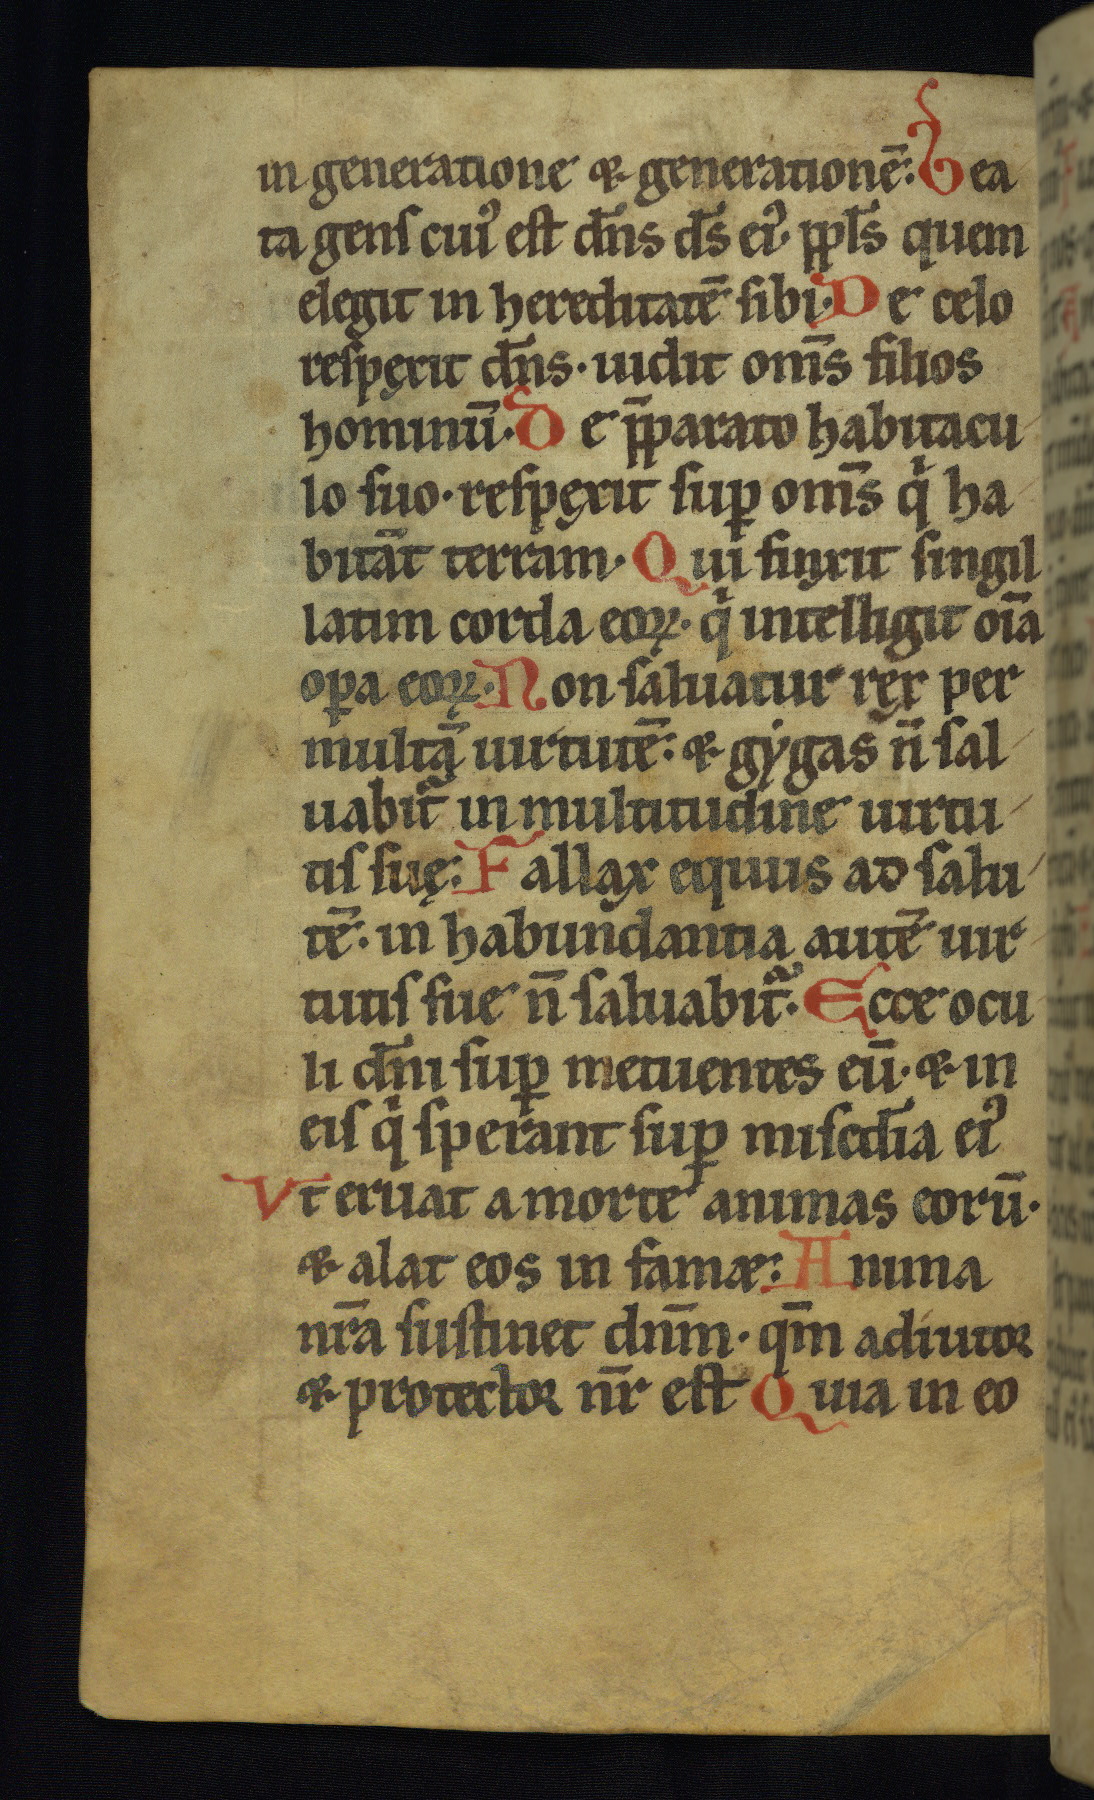 in generatione & generationē: Bea
ta gens cuiꝰ est dn̄s ds̄ eiꝰ. ppl̄s quem
elegit in hereditatē sibi. De celo
respexit dn̄s. uidit om̄s filios
hominū. De p̄parato habitacu
lo suo. respexit suꝑ om̄s qͥ ha
bitāt terram. Qui finxit singil
latim corda eoꝝ. qͥ intelligit oīa
oꝑa eoꝝ. Non saluatur rex per
multā uirtutē: & gygas n̄ sal
uabit᷑ in multitudine uirtu
tis suę: Fallax equus ad salu
tē. in habundantia autē uir
tutis sue n̄ saluabit᷑. Ecce ocu
li dn̄i suꝑ metuentes eū. & in
eis qͥ sperant suꝑ misc̄dia eiꝰ
Vt eruat a morte animas eorū.
& alat eos in famæ: Anima
nr̄a sustinet dnm̄. qm̄ adiutor
& protector nr̄ est Quia in eo